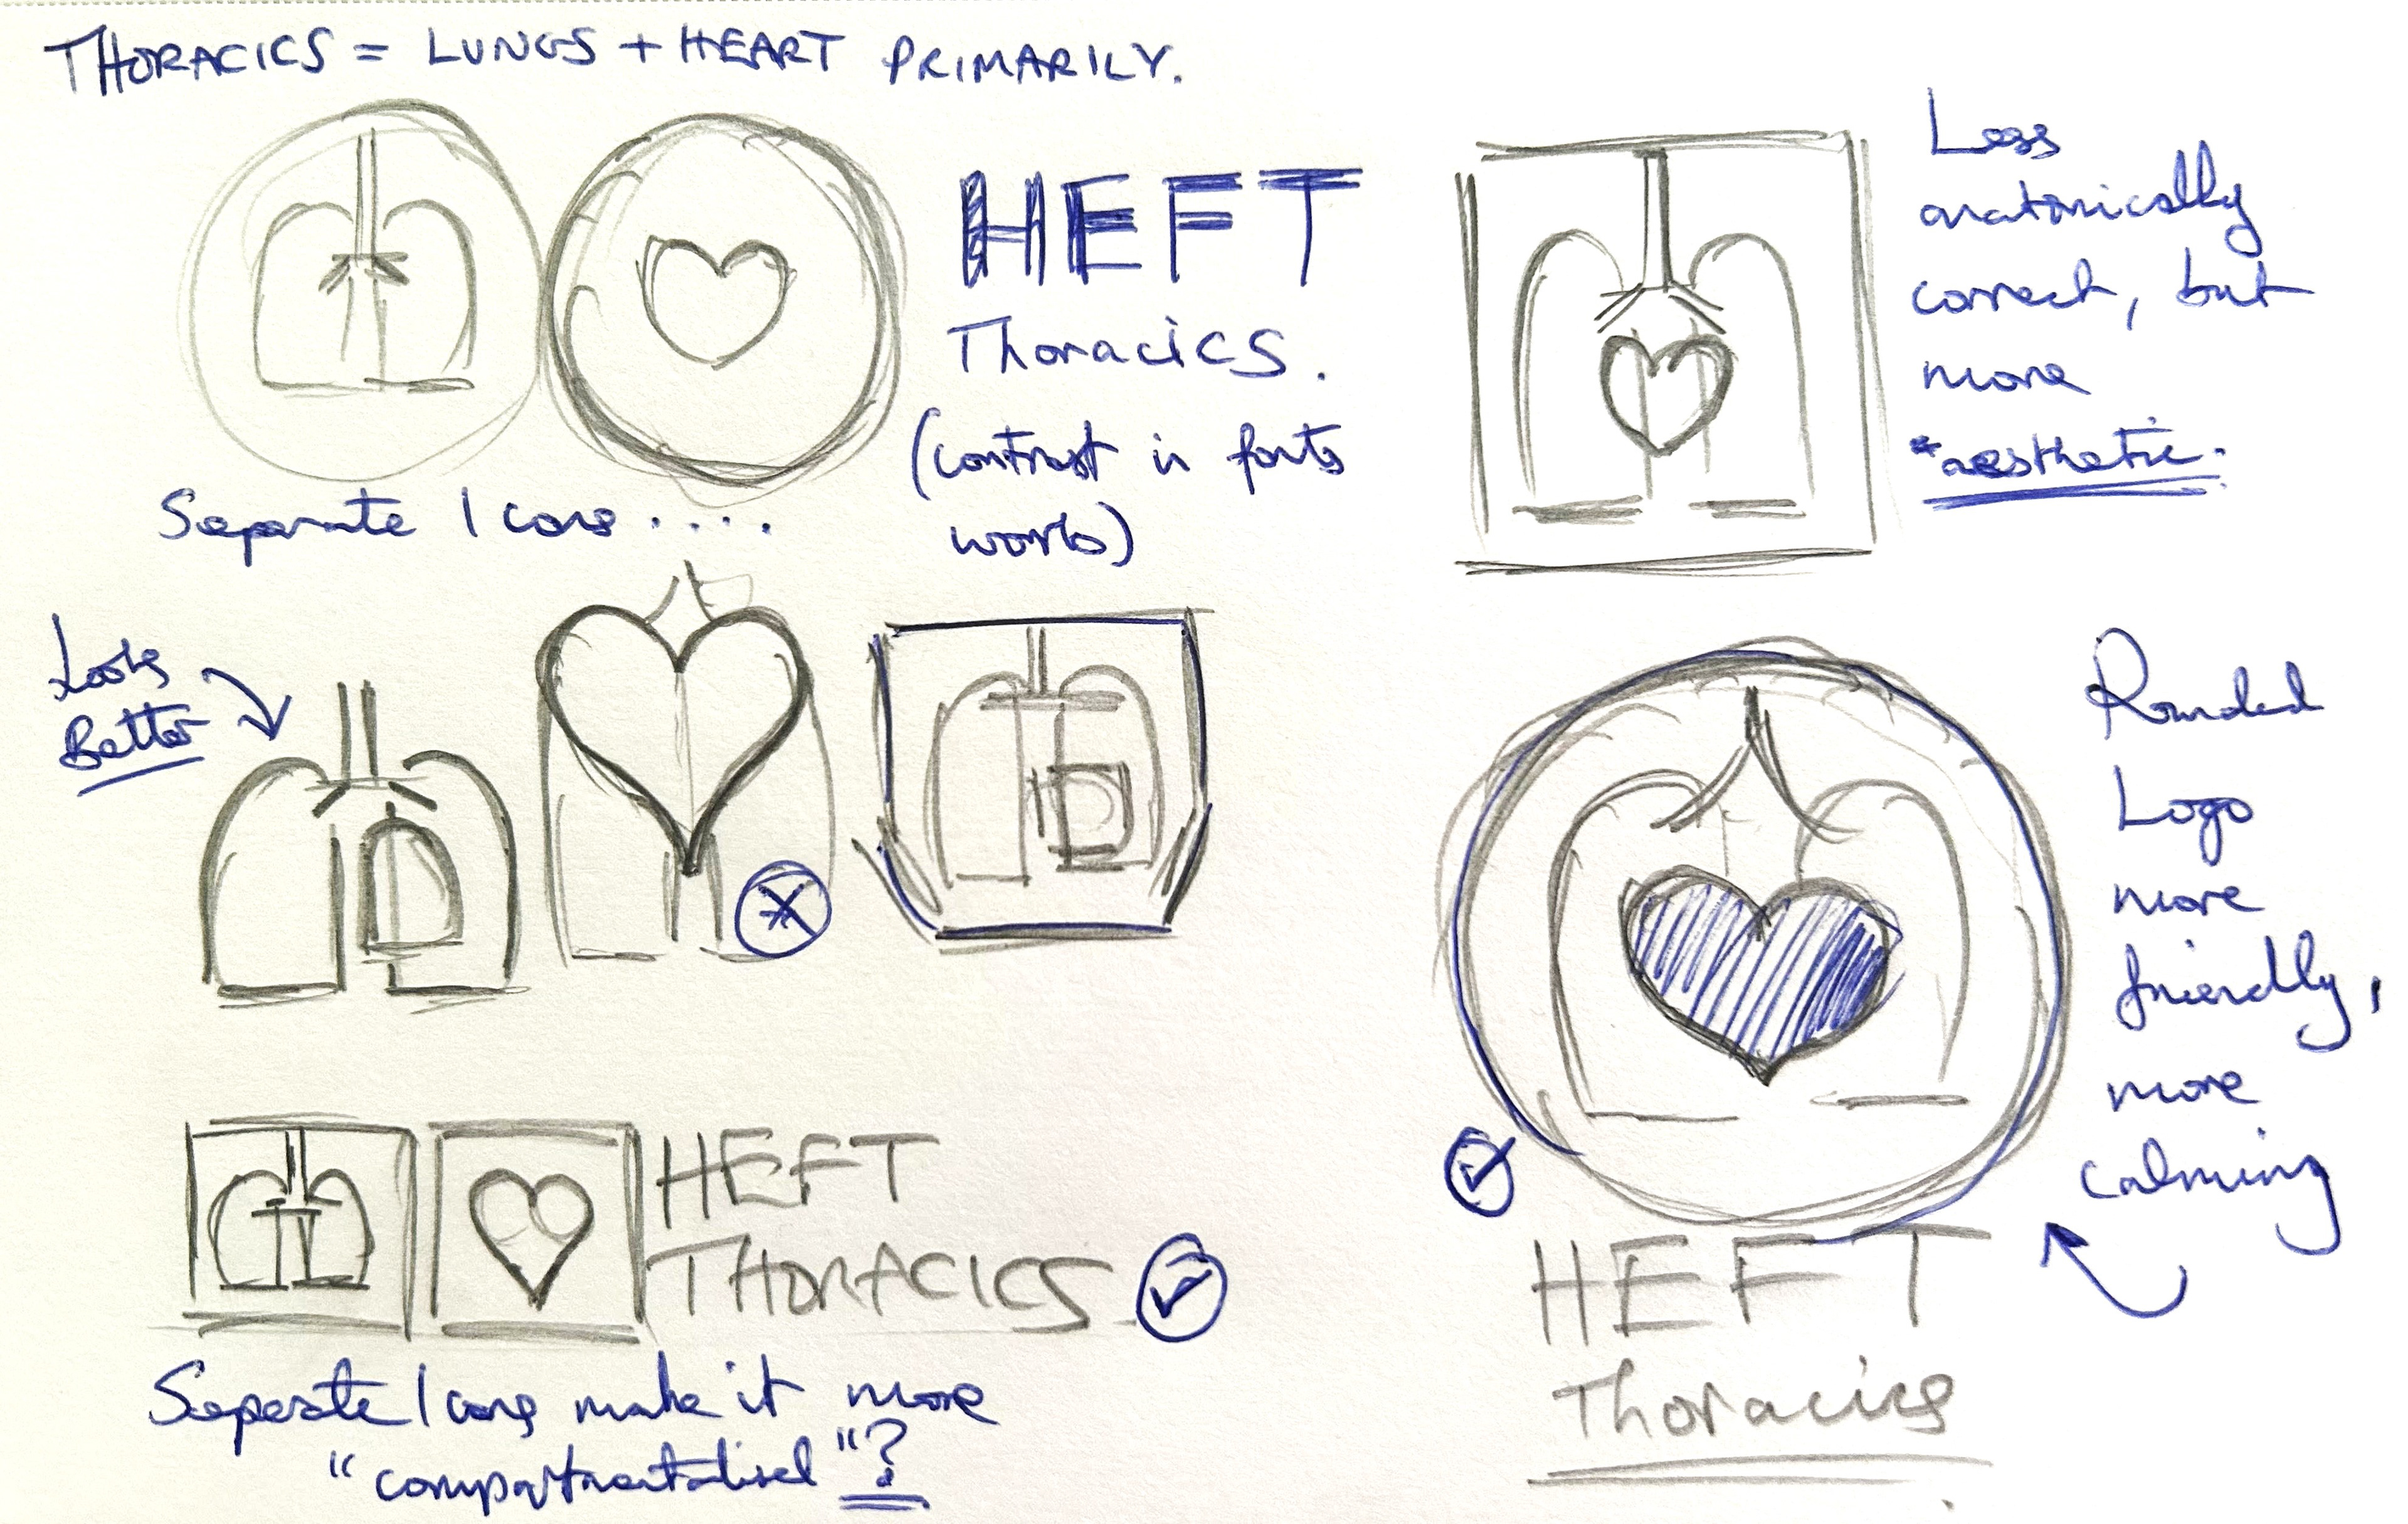 THORACICS = LUNGS + HEART PRIMARILY.
HEFT
Thoracics.
(contrast in fonts
works)
Separate Icons....
Less
anatomically
correct, but
more
"aesthetic.
Looks
Better
Rounded
Logo
more
friendly,
more
calming
HEFT
THORACICS
Seperate Icons make it more
"compartmentalised"?
HEFT
Thoracics